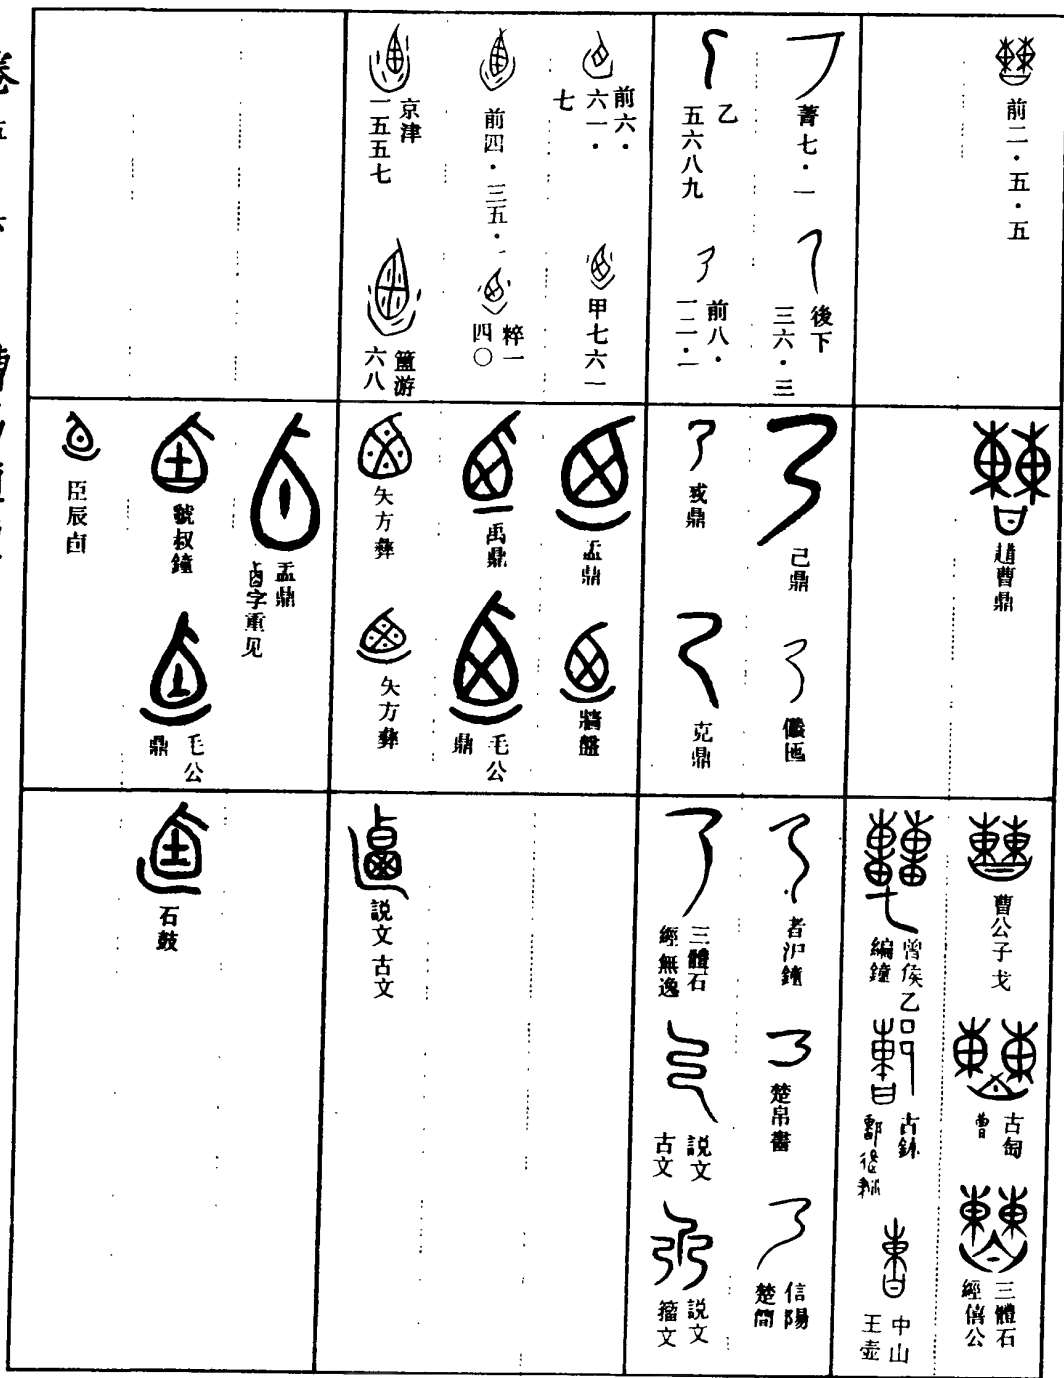 前二·五·五
菁七·一
後下三六·三
乙五六八九
前八·一二·一
前六·六一·七
甲七六一
前四·三五·一
粹一四〇
京津一五五七
簠游六八
趞曹鼎
己鼎
儼匜
戜鼎
克鼎
盂鼎
牆盤
禹鼎
毛公鼎
矢方彝
矢方彝
盂鼎
卣字重见
虢叔鐘
毛公鼎
臣辰卣
曹公子戈
古匋
曹
三體石經僖公
曾侯乙編鐘
古鉨
中山王壺
者㳓鐘
楚帛書
信陽楚簡
三體石經無逸
説文古文
説文籀文
説文古文
石鼓
卷五